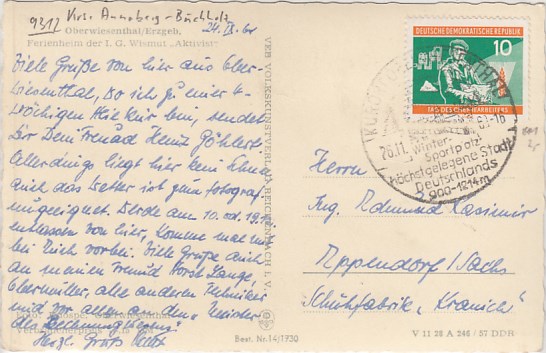 9317 Krs. Annaberg-Buchholz
Oberwiesenthal/Erzgeb.
Ferienheim der I. G. Wismut „Aktivist"
Viele Grüße von hier aus Ober-
wiesenthal, wo ich zu einer 4-
wöchigen Kur bin, sendet
Dir Dein Freund Heinz Göhlert.
Allerdings liegt hier kein Schnee
auch das Wetter ist zum fotograf.
ungeeignet. Werde am 10. od. 19.12
entlassen von hier, komme mal mit
bei Dich vorbei. Viele Grüße auch
an meinen Freund Horst Lange,
alle anderen Techniker
und vor allem an den Meister
des
Herzl. Gruß Heinz
Verbraucherpreis
Best. Nr. 14/1930
VEB VOLKSKUNSTVERLAG REICHENBACH I. V.
DEUTSCHE DEMOKRATISCHE REPUBLIK
10
TAG DES CHEMIEARBEITERS
KURORT
26.11.
Winter-
Sportplatz
Höchstgelegene Stadt
Deutschlands
900-1214m
Herrn
Ing. Edmund Kasimir
Eppendorf/Sachs
Schuhfabrik „Kranich"
V 11 28 A 246 / 57 DDR